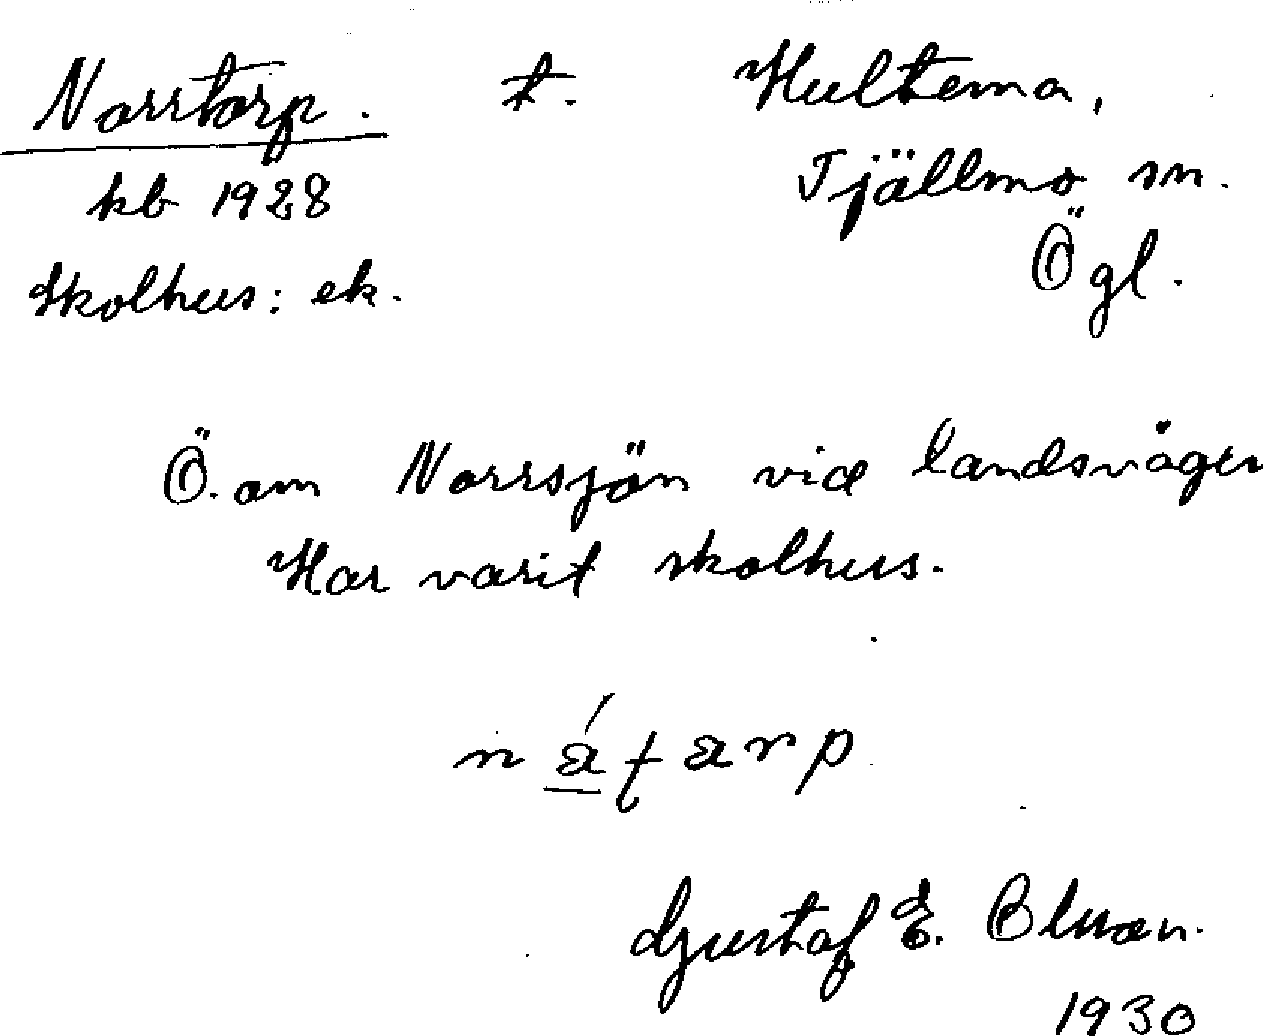 Norrtorp. t. Hultema,
kb 1928 Tjällmo sn.
Skolhus: ek. Ögl.
Ö. om Norrsjön vid landsvägen
Har varit skolhus.
Gustaf E. Bluan.
1930